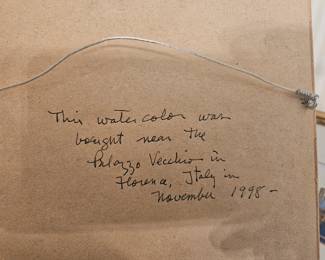 This watercolor was
bought near the
Palazzo Vecchio in
Florence, Italy in
November 1998 -